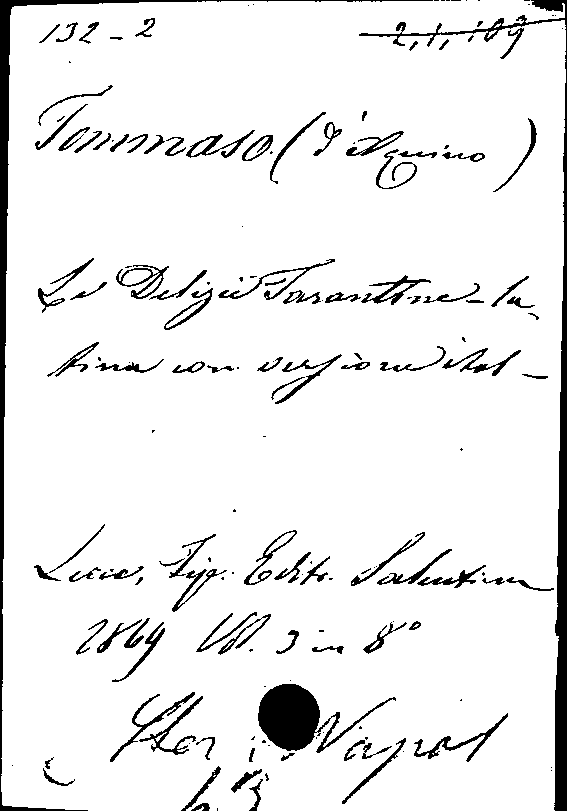 132-2 2,1,109
Tommaso (d'Aquino)
Le Delizie Tarantine - la-
tina con versione ital -
Lecce, Tip. Editr. Salentina
1869 Vol. 3 in 8°
Napol